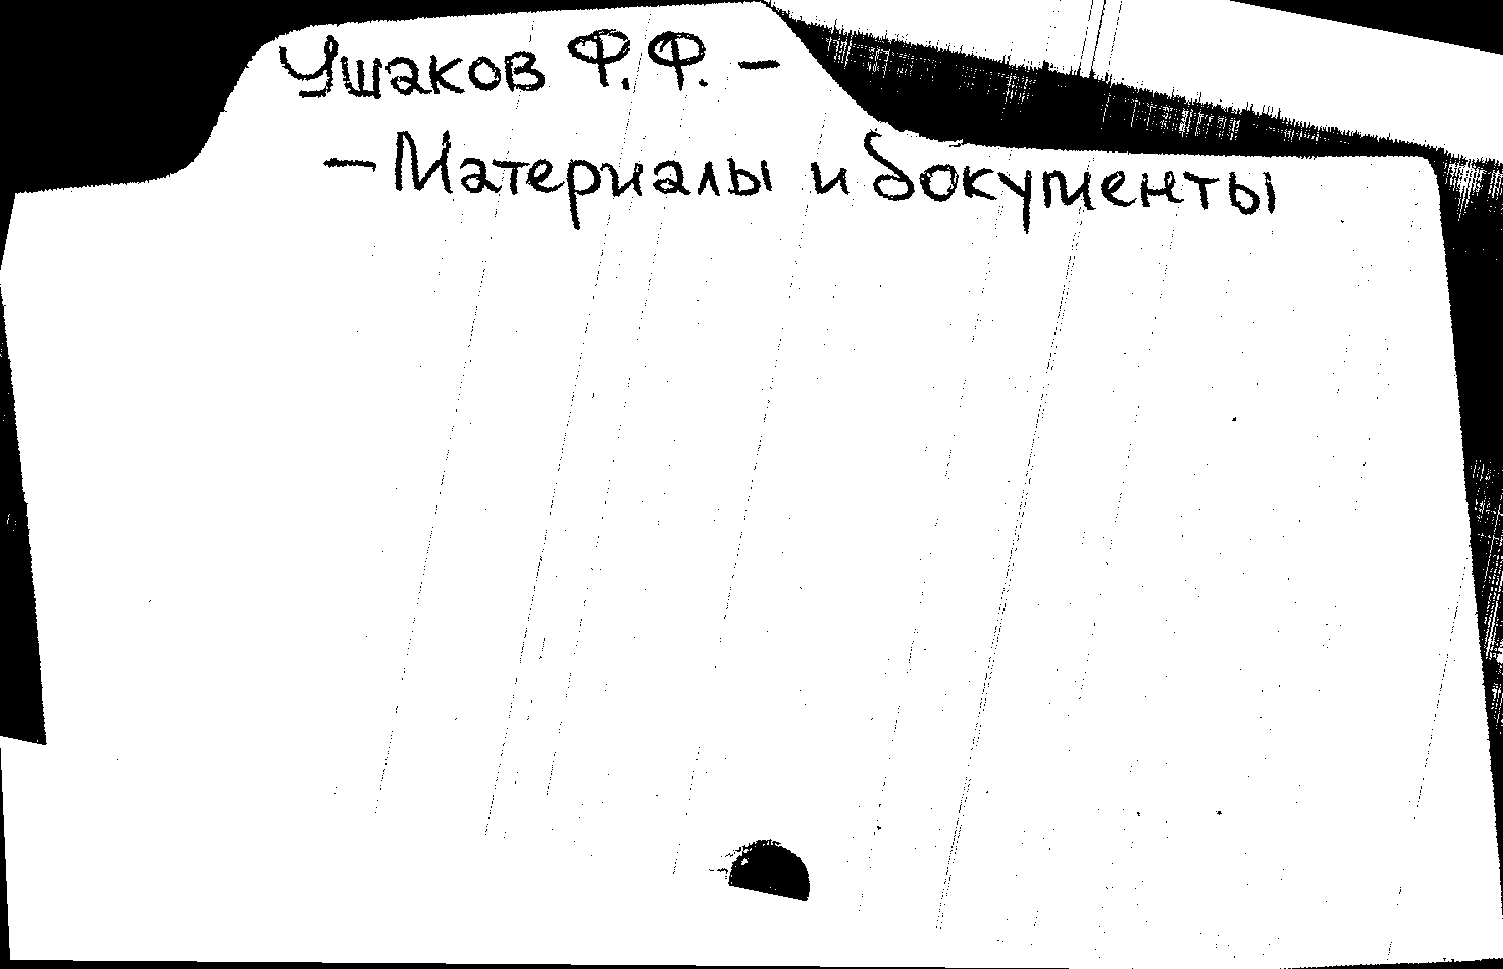 Ушаков Ф.Ф. –
– Материалы и документы